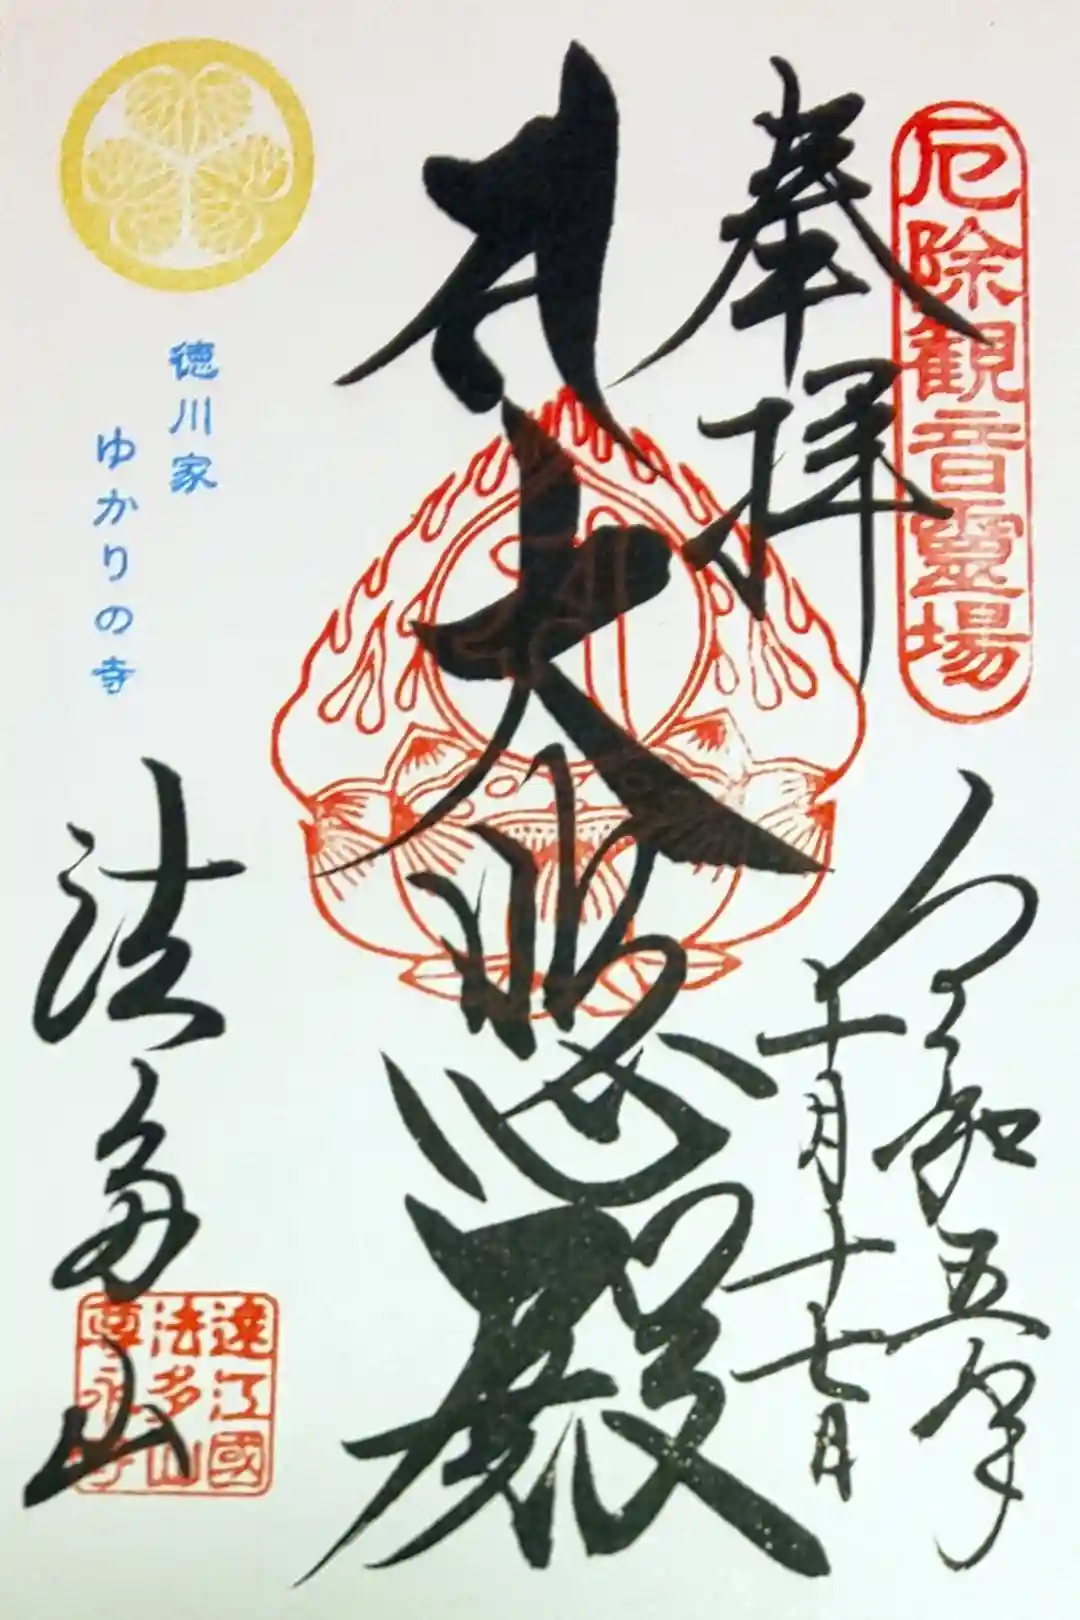 厄除観音靈場
奉拝
令和五年
十月十七日
大悲殿
徳川家
ゆかりの寺
法多山
遠江國
法多山
尊永寺